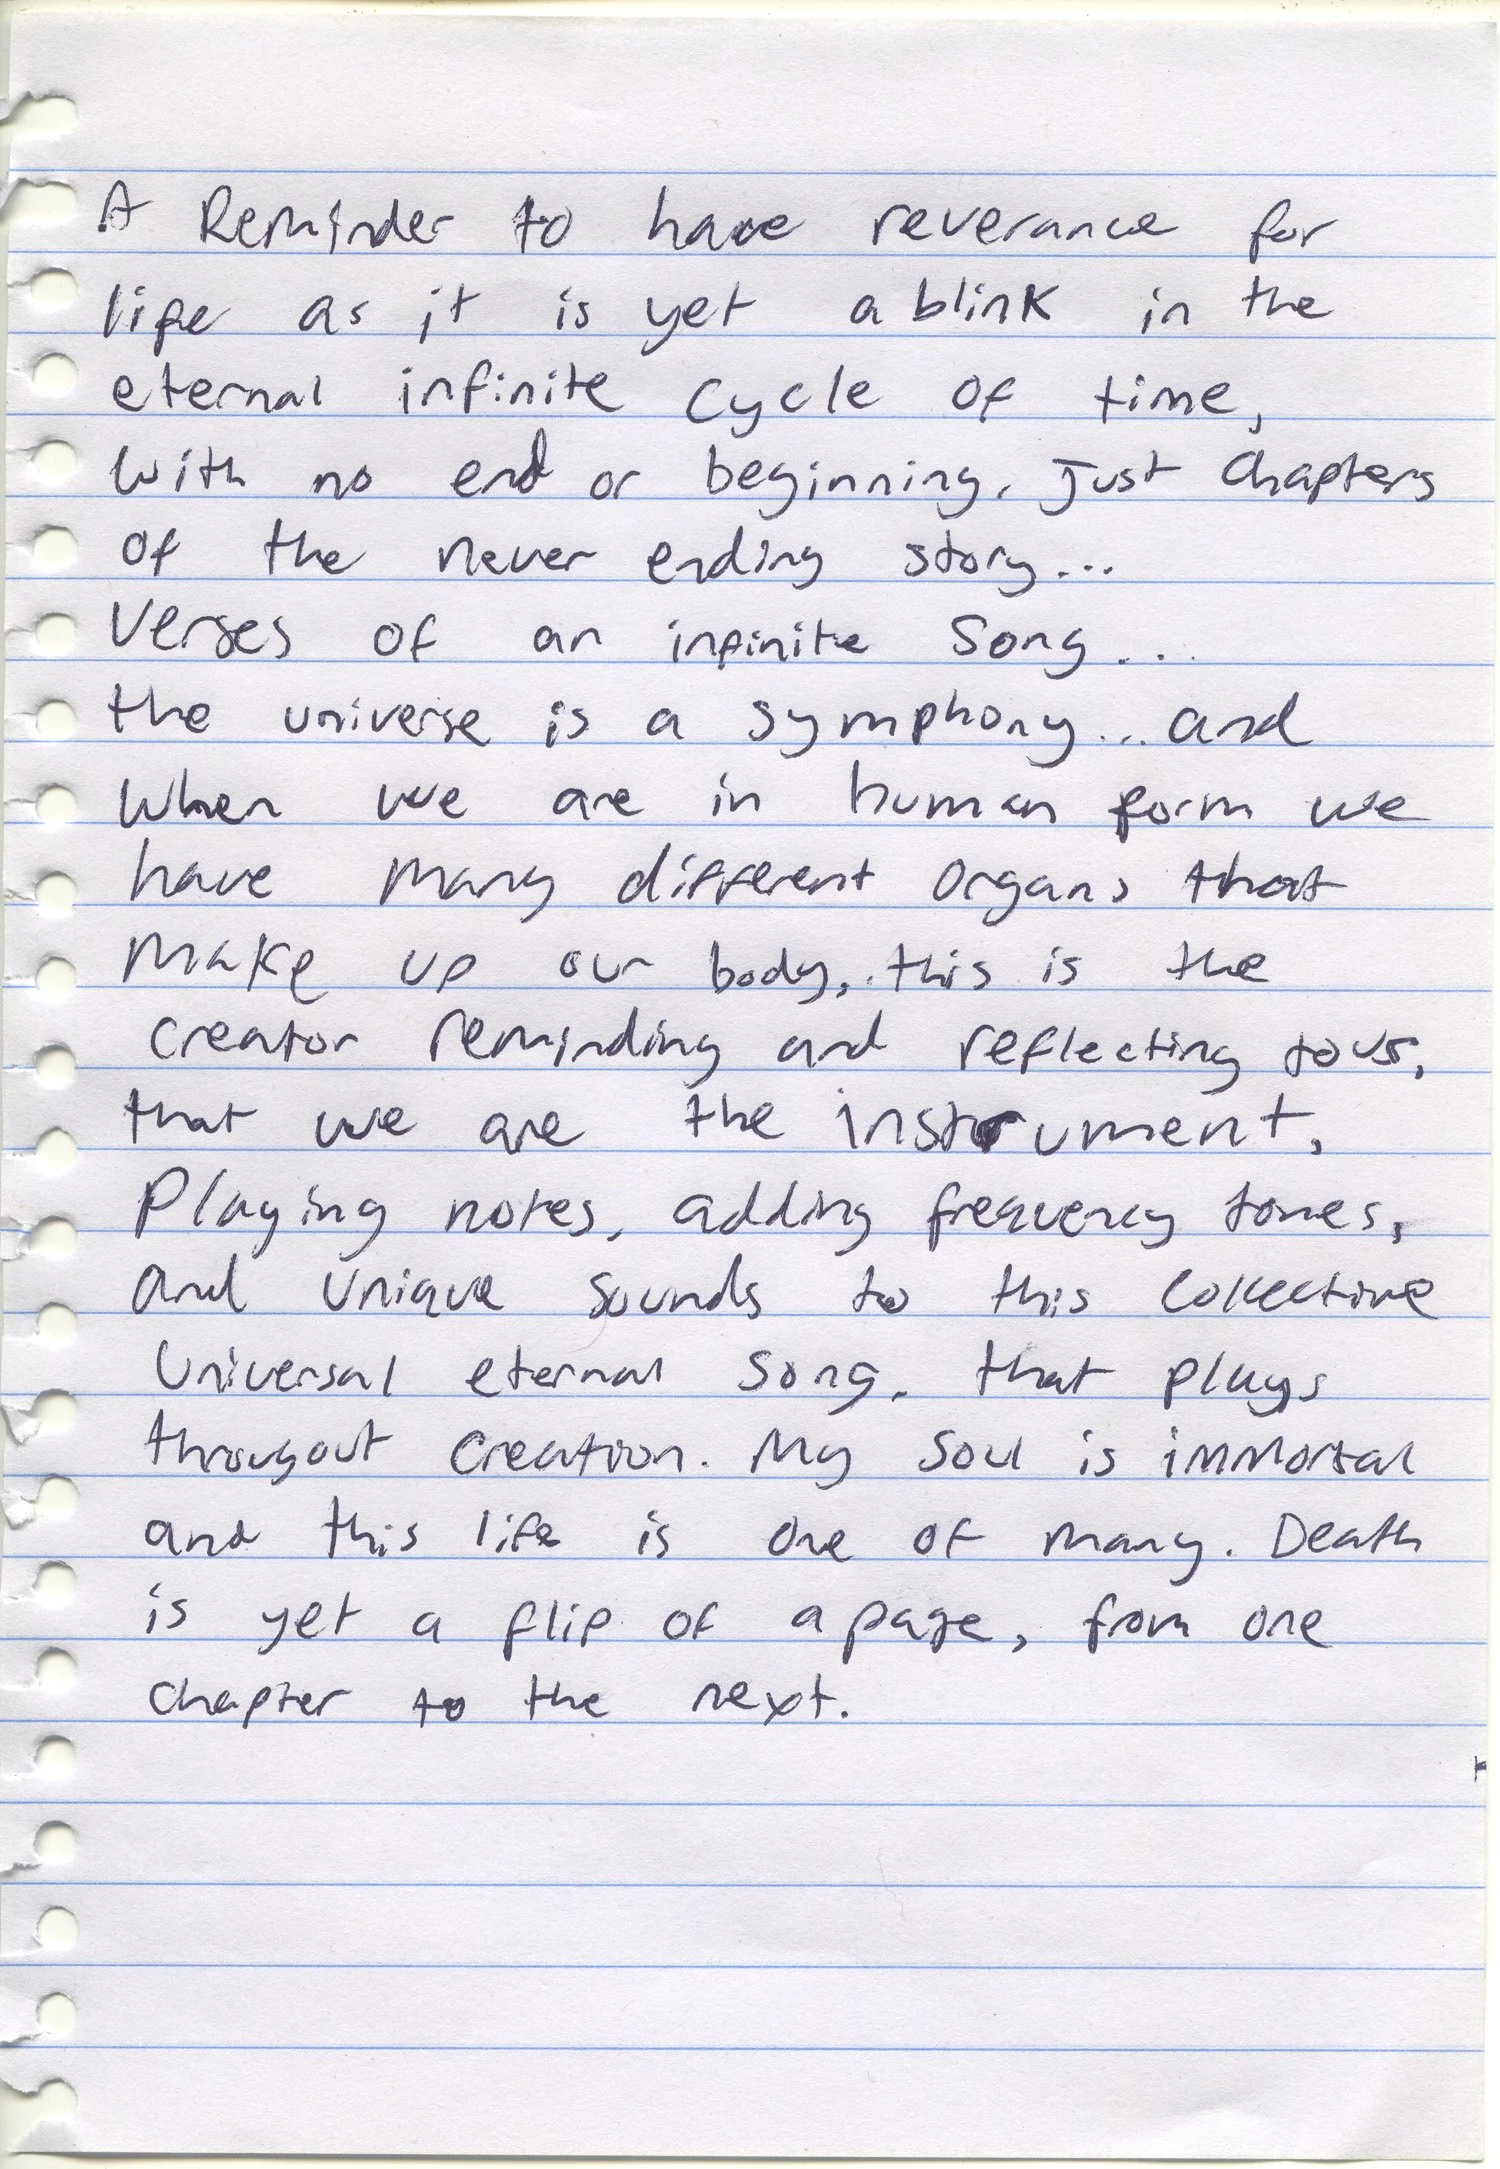 A Reminder to have reverance for
life as it is yet a blink in the
eternal infinite cycle of time,
With no end or beginning, Just Chapters
Of the never ending story...
Verses of an infinite Song...
the universe is a symphony...and
When we are in human form we
have many different organs that
make up our body, this is the
creator reminding and reflecting to us,
that we are the instrument,
Playing notes, adding frequency tones,
and unique sounds to this collective
Universal eternal song, that plays
througout creation. My soul is immortal
and this life is one of many. Death
is yet a flip of a page, from one
chapter to the next.